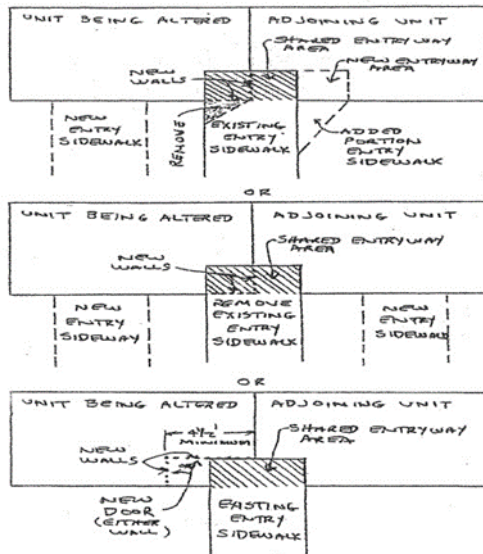 UNIT BEING ALTERED
ADJOINING UNIT
SHARED ENTRYWAY
AREA
NEW
WALLS
NEW ENTRYWAY
AREA
NEW
ENTRY
SIDEWALK
REMOVE
EXISTING
ENTRY
SIDEWALK
ADDED
PORTION
ENTRY
SIDEWALK
OR
UNIT BEING ALTERED
ADJOINING UNIT
NEW
WALLS
SHARED ENTRYWAY
AREA
NEW
ENTRY
SIDEWAY
REMOVE
EXISTING
ENTRY
SIDEWALK
NEW
ENTRY
SIDEWALK
OR
UNIT BEING ALTERED
ADJOINING UNIT
4½'
MINIMUM
SHARED ENTRYWAY
AREA
NEW
WALLS
NEW
DOOR
(EITHER
WALL)
EXISTING
ENTRY
SIDEWALK